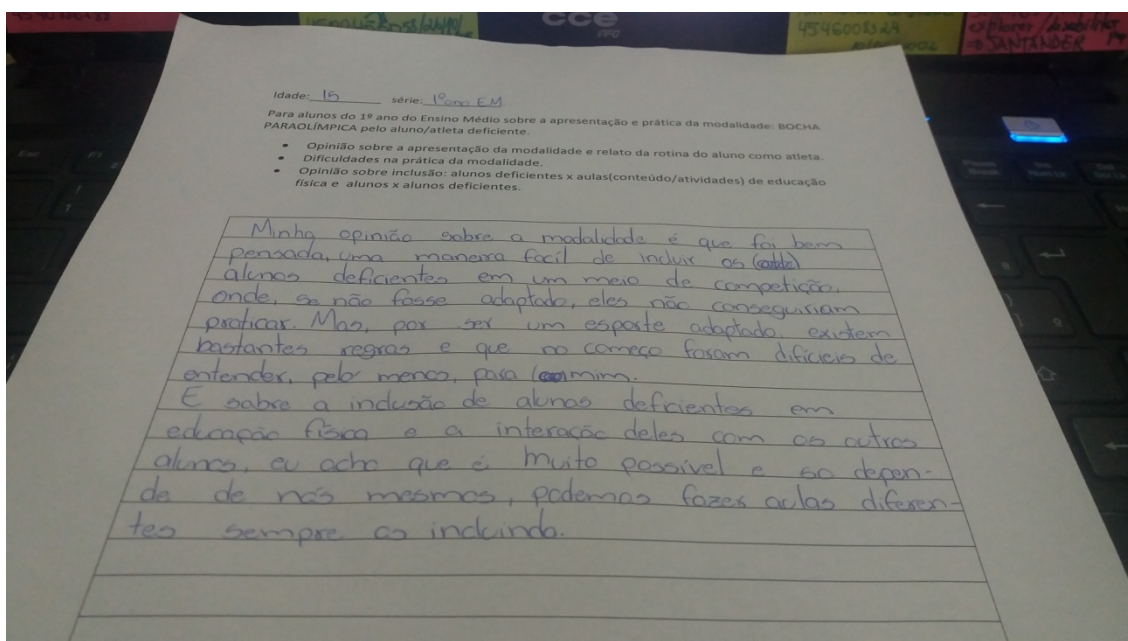 cce
INFO
4546008324
SANTANDER
Idade: 15 série: 1º ano EM
Para alunos do 1º ano do Ensino Médio sobre a apresentação e prática da modalidade: BOCHA
PARAOLÍMPICA pelo aluno/atleta deficiente.
• Opinião sobre a apresentação da modalidade e relato da rotina do aluno como atleta.
• Dificuldades na prática da modalidade.
• Opinião sobre inclusão: alunos deficientes x aulas(conteúdo/atividades) de educação
física e alunos x alunos deficientes.
Minha opinião sobre a modalidade é que foi bem
pensada, uma maneira facil de incluir os
alunos deficientes em um meio de competição,
onde, se não fosse adaptado, eles não conseguiriam
praticar. Mas, por ser um esporte adaptado, existem
bastantes regras e que no começo foram difíceis de
entender, pelo menos, para mim.
E sobre a inclusão de alunos deficientes em
educação física e a interação deles com os outros
alunos, eu acho que é muito possível e so depen-
de de nós mesmos, podemos fazer aulas diferen-
tes sempre os incluindo.